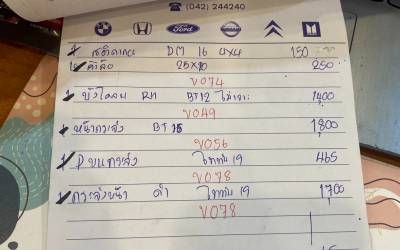 (042) 244240
Ford
DM 16 4x4 150
คิ้วล้อ 25x10 250
V074
1 บังโคลน RH BT12 ไม่เจาะ 1400
V049
หน้ากระจัง BT15 1800
V056
1 P บนกระจัง ไททัน 19 465
V078
1 กระจังหน้า ดำ ไททัน 19 1700
V078